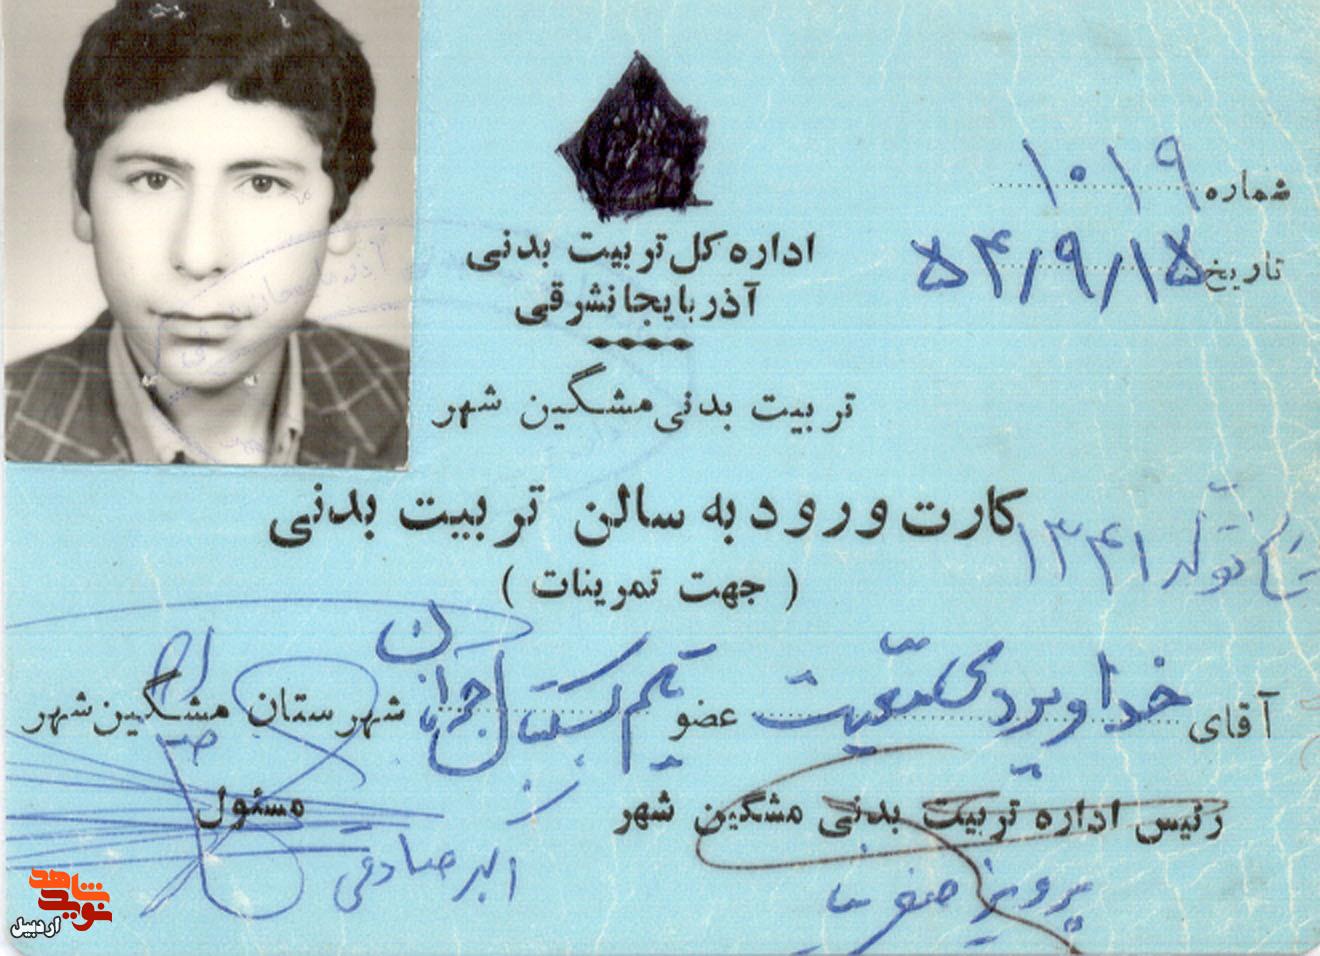 شماره ۱۰۱۹
تاریخ ۵۴/۹/۱۵
اداره کل تربیت بدنی
آذربایجانشرقی
تربیت بدنی مشگین شهر
کارت ورود به سالن تربیت بدنی
تولد ۱۳۴۱
( جهت تمرینات )
آقای خداویردی عضو تیم بسکتبال شهرستان مشگین شهر
رئیس اداره تربیت بدنی مشگین شهر
مسئول
پرویز
اکبر صادقی
نوید شاهد
اردبیل